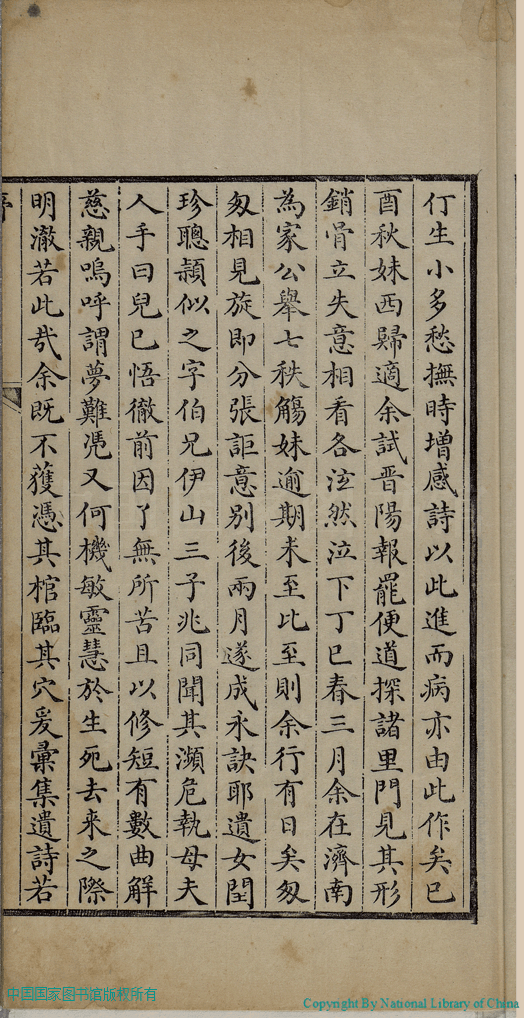 仃生小多愁撫時增感詩以此進而病亦由此作矣已
酉秋妹西歸適余試晋陽報罷便道探諸里門見其形
銷骨立失意相看各泫然泣下丁巳春三月余在濟南
為家公舉七秩觴妹逾期未至比至則余行有日矣匆
匆相見旋即分張詎意別後兩月遂成永訣耶遺女閏
珍聰頴似之字伯兄伊山三子兆同聞其瀕危執母夫
人手曰兒已悟徹前因了無所苦且以修短有數曲解
慈親嗚呼謂夢難凴又何機敏靈慧於生死去來之際
明澈若此㢤余既不獲憑其棺臨其穴爰彙集遺詩若
序
中国国家图书馆版权所有
Copyright By National Library of China